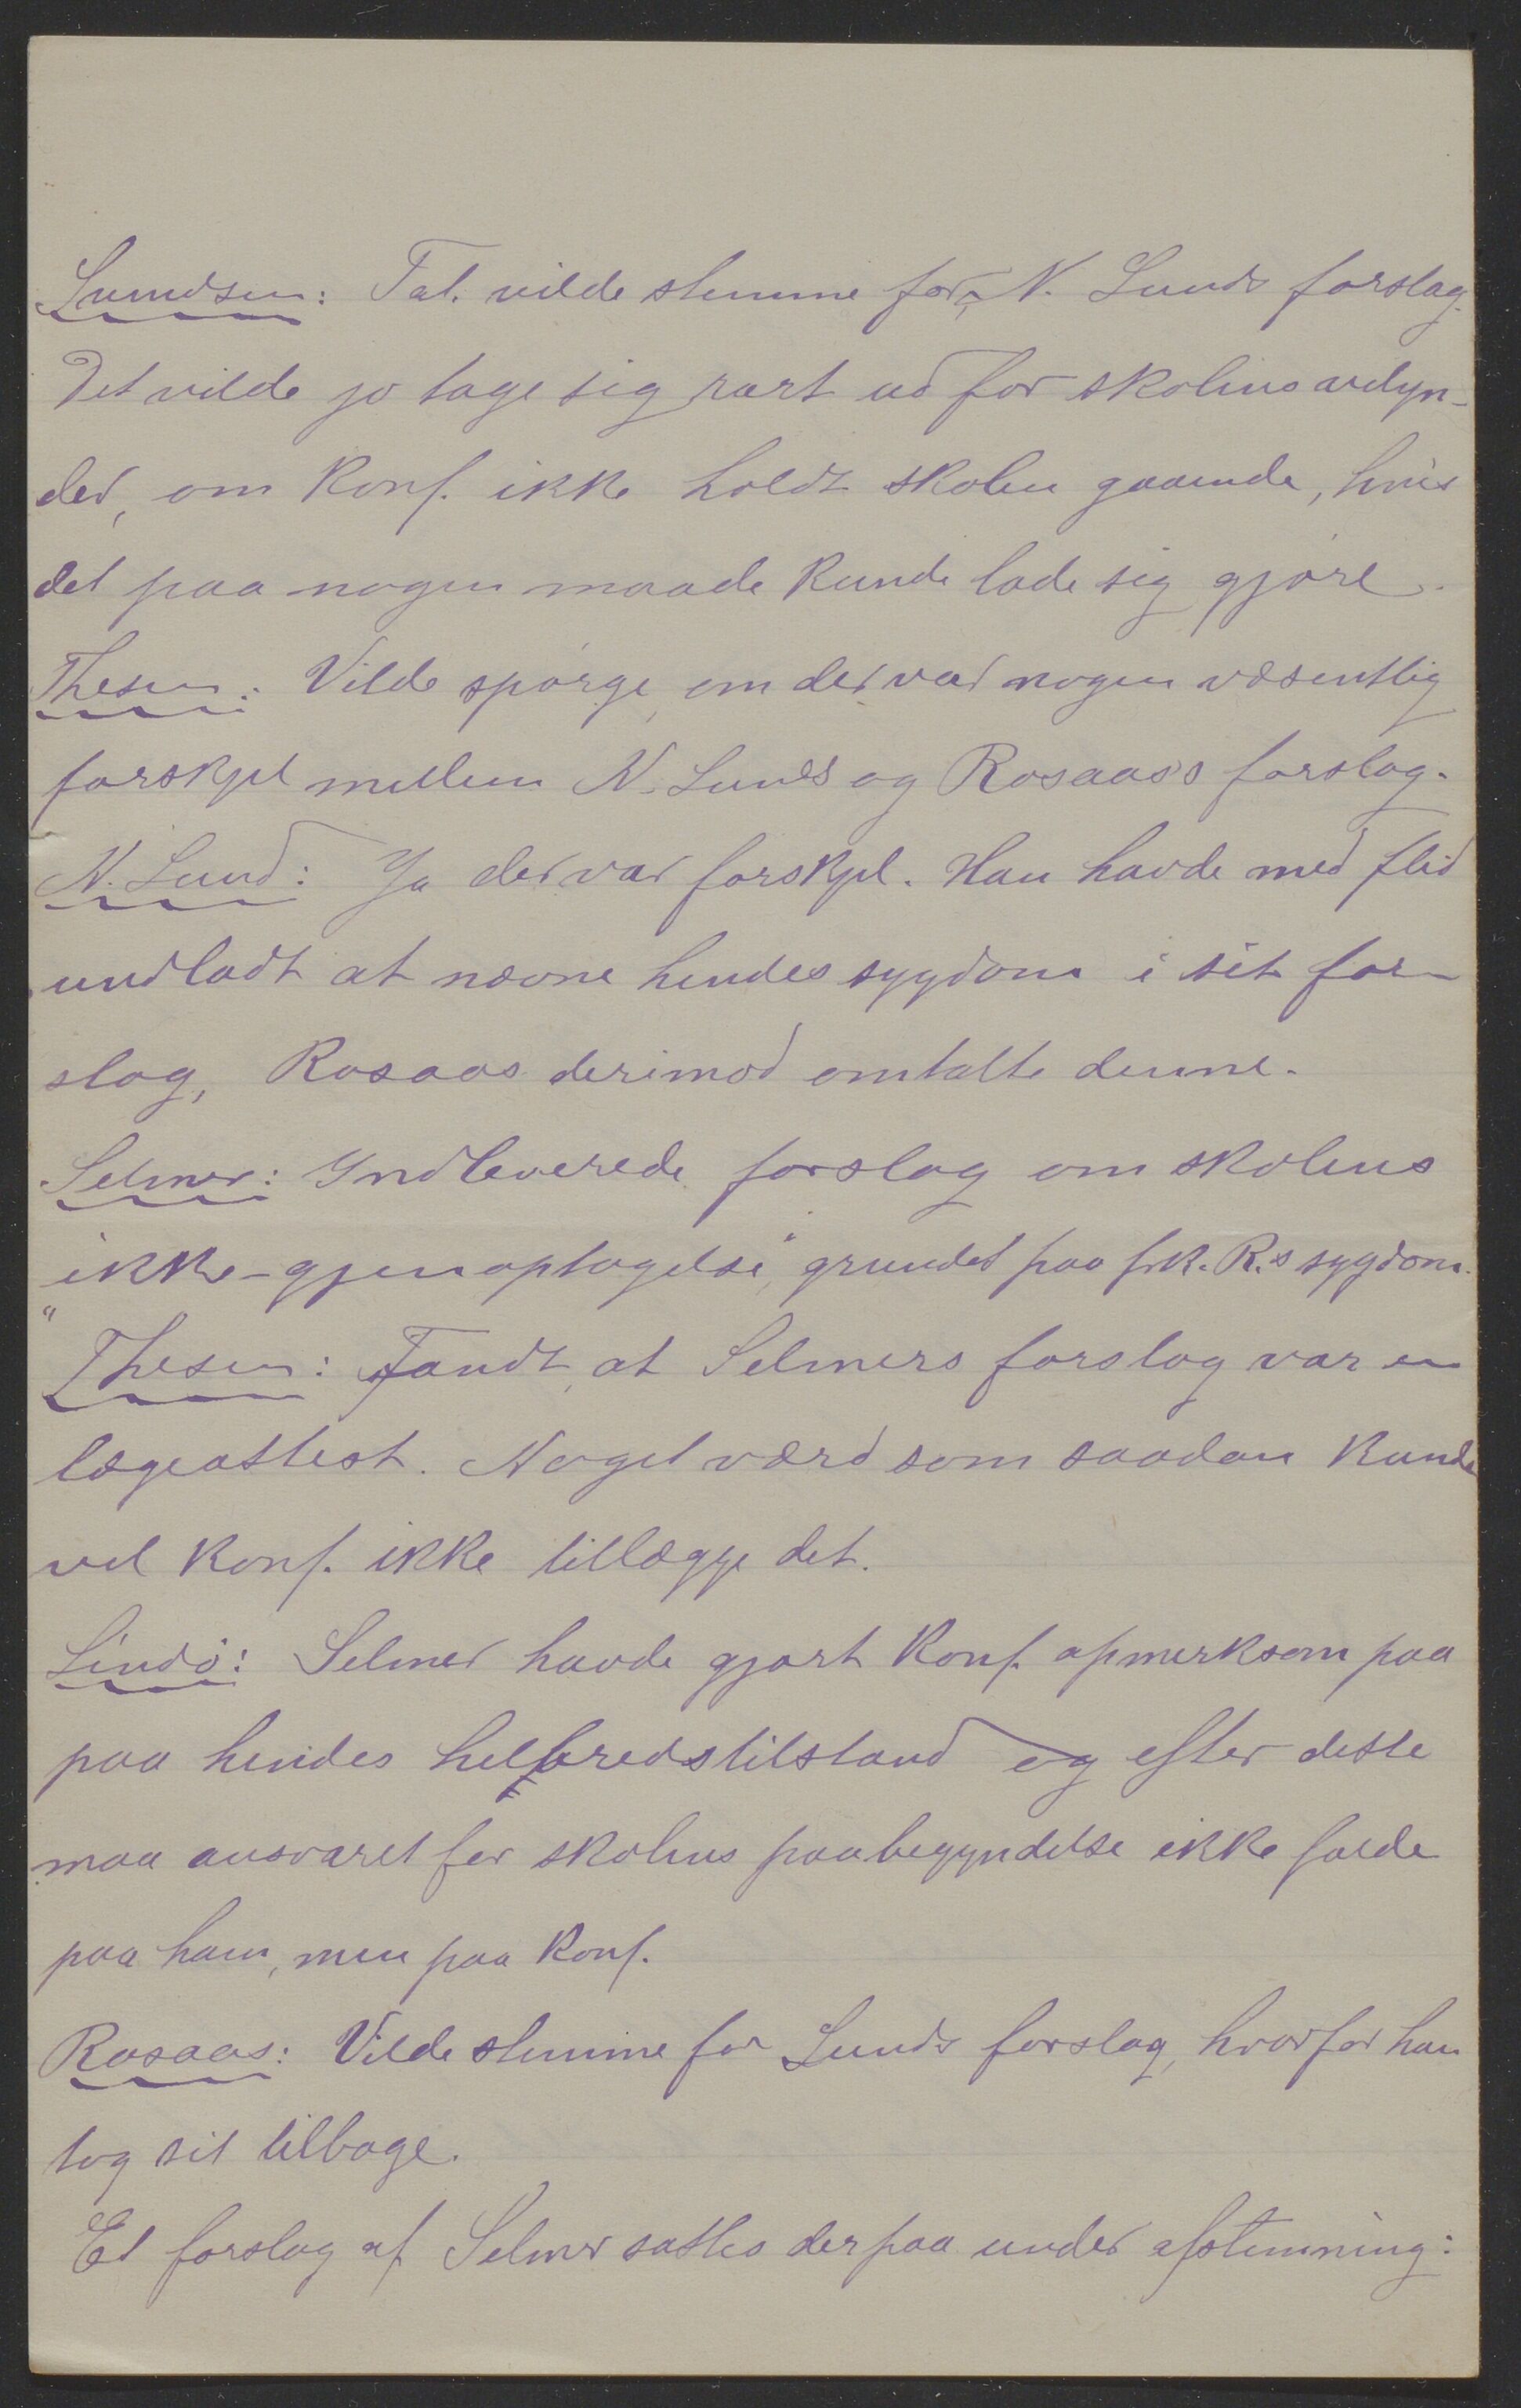 Svendsen: Tal. vilde stemme for N. Lunds forslag.
Det vilde jo tage sig rart ud for skolens 
der, om Konf. ikke holdt skolen gaaende, hvis
det paa nogen maade kunde lade sig gjöre.
Thesen: Vilde spörge, om der var nogen væsentlig
forskjel mellem N. Lunds og Rosaas's forslag.
N. Lund: Ja der var forskjel. Han havde med flid
undladt at nævne hendes sygdom i sit for-
slag, Rosaas derimod omtalte denne.
Selmer: Indleverede forslag om skolens
ikke-gjenoptagelse, "grundet paa frk. R.s sygdom.
" Thesen: Fandt, at Selmers forslag var en
lægeattest. Noget værd som saadan kunde
vel Konf. ikke tillægge det.
Lindö: Selmer havde gjort Konf. opmerksom paa
paa hendes helbredstilstand og efter dette
maa ansvaret for skolens paabegyndelse ikke falde
paa ham, men paa Konf.
Rosaas: Vilde stemme for Lunds forslag, hvorfor han
tog sit tilbage.
Et forslag af Selmer sattes derpaa under afstemning: